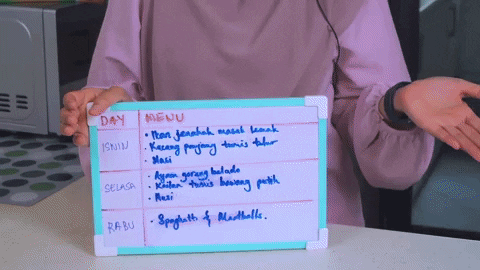 DAY MENU
ISNIN
• Ikan jenahak masak lemak
• Kacang panjang tumis telur
• Nasi
SELASA
• Ayam goreng balado
• Kailan tumis bawang putih
• Nasi
RABU
• Spaghetti & Meatballs.